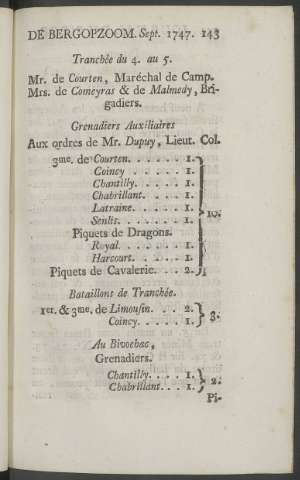 DE BERGOPZOOM. Sept. 1747. 143
Tranchée du 4. au 5.
Mr. de Courten, Maréchal de Camp.
Mrs. de Comeyras & de Malmedy, Bri-
gadiers.
Grenadiers Auxiliaires
Aux ordres de Mr. Dupuy, Lieut. Col.
3me. de Courten. . . . . . 1.
Coincy . . . . . 1.
Chantilly. . . . . 1.
Chabrillant. . . . 1.
Latraine. . . . . 1.
Senlis. . . . . . 1.
10.
Piquets de Dragons.
Royal. . . . . . 1.
Harcourt. . . . . 1.
Piquets de Cavalerie. . . 2.
Bataillons de Tranchée.
1er. & 3me. de Limousin. . . 2.
Coincy. . . . . 1.
3.
Au Bivoehac,
Grenadiers.
Chantilly. . . . 1.
Chabrillant. . . 1.
2.
Pi-